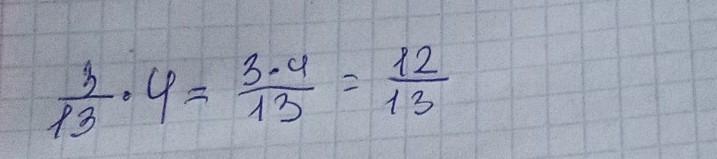 3/13 · 4 = 3·4/13 = 12/13